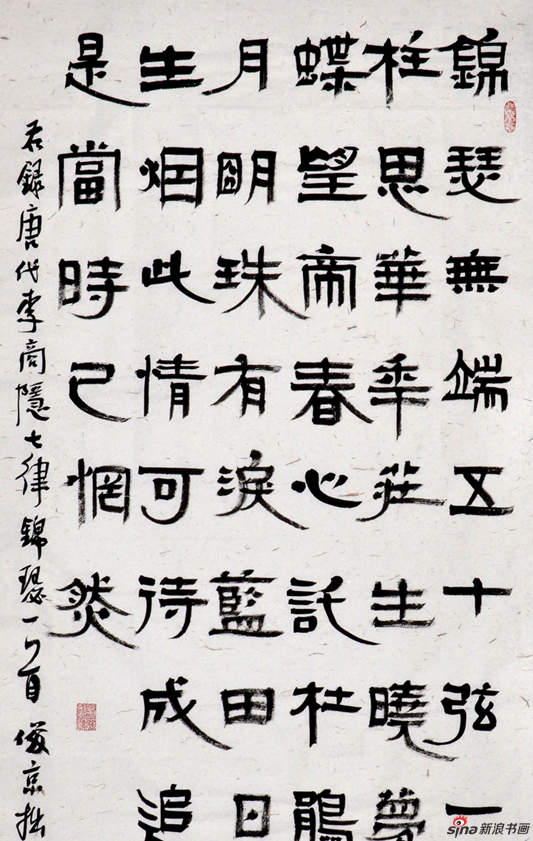 錦瑟無端五十弦一
柱思華年莊生曉夢
蝶望帝春心託杜鵑
月明珠有淚藍田日
生烟此情可待成追
是當時已惘然
右錄唐代李商隱七律錦瑟一首 京拙
sina新浪书画